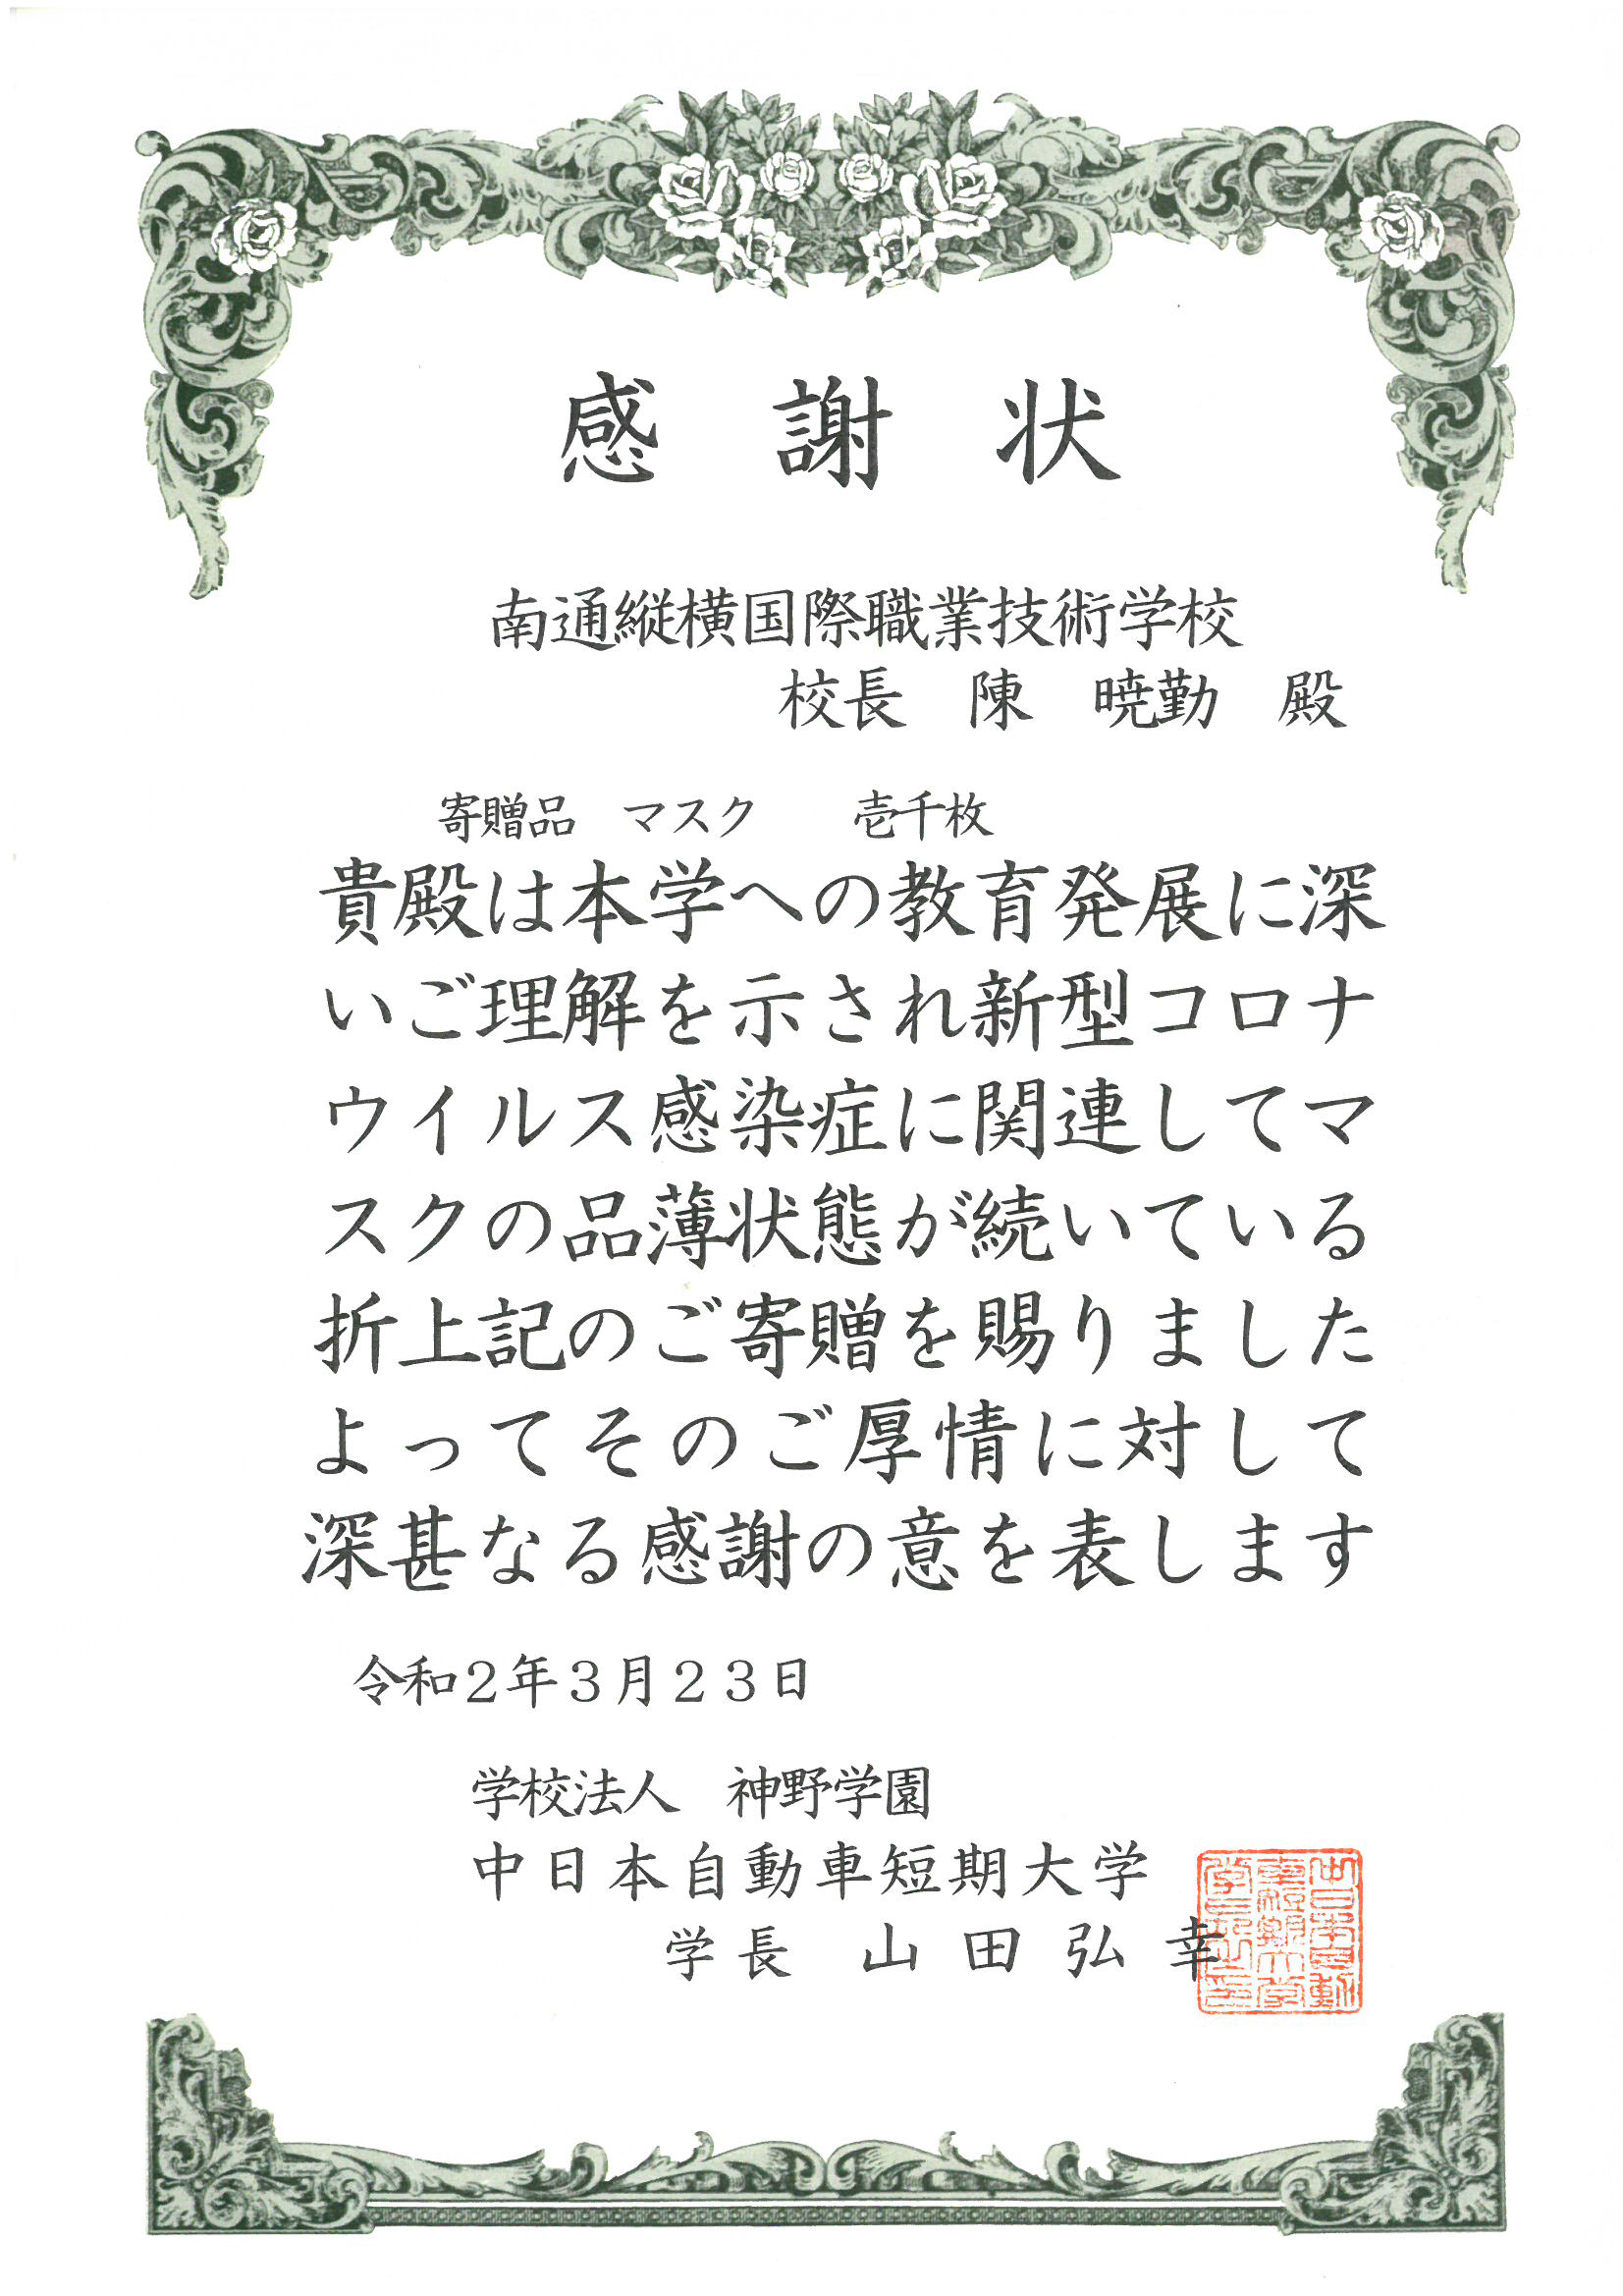 感謝状
南通縦横国際職業技術学校
校長　陳　暁勤　殿
寄贈品　マスク　　壱千枚
貴殿は本学への教育発展に深
いご理解を示され新型コロナ
ウイルス感染症に関連してマ
スクの品薄状態が続いている
折上記のご寄贈を賜りました
よってそのご厚情に対して
深甚なる感謝の意を表します
令和２年３月２３日
学校法人　神野学園
中日本自動車短期大学
学長　山田弘幸
中日本自動
車短期大学
学長之印